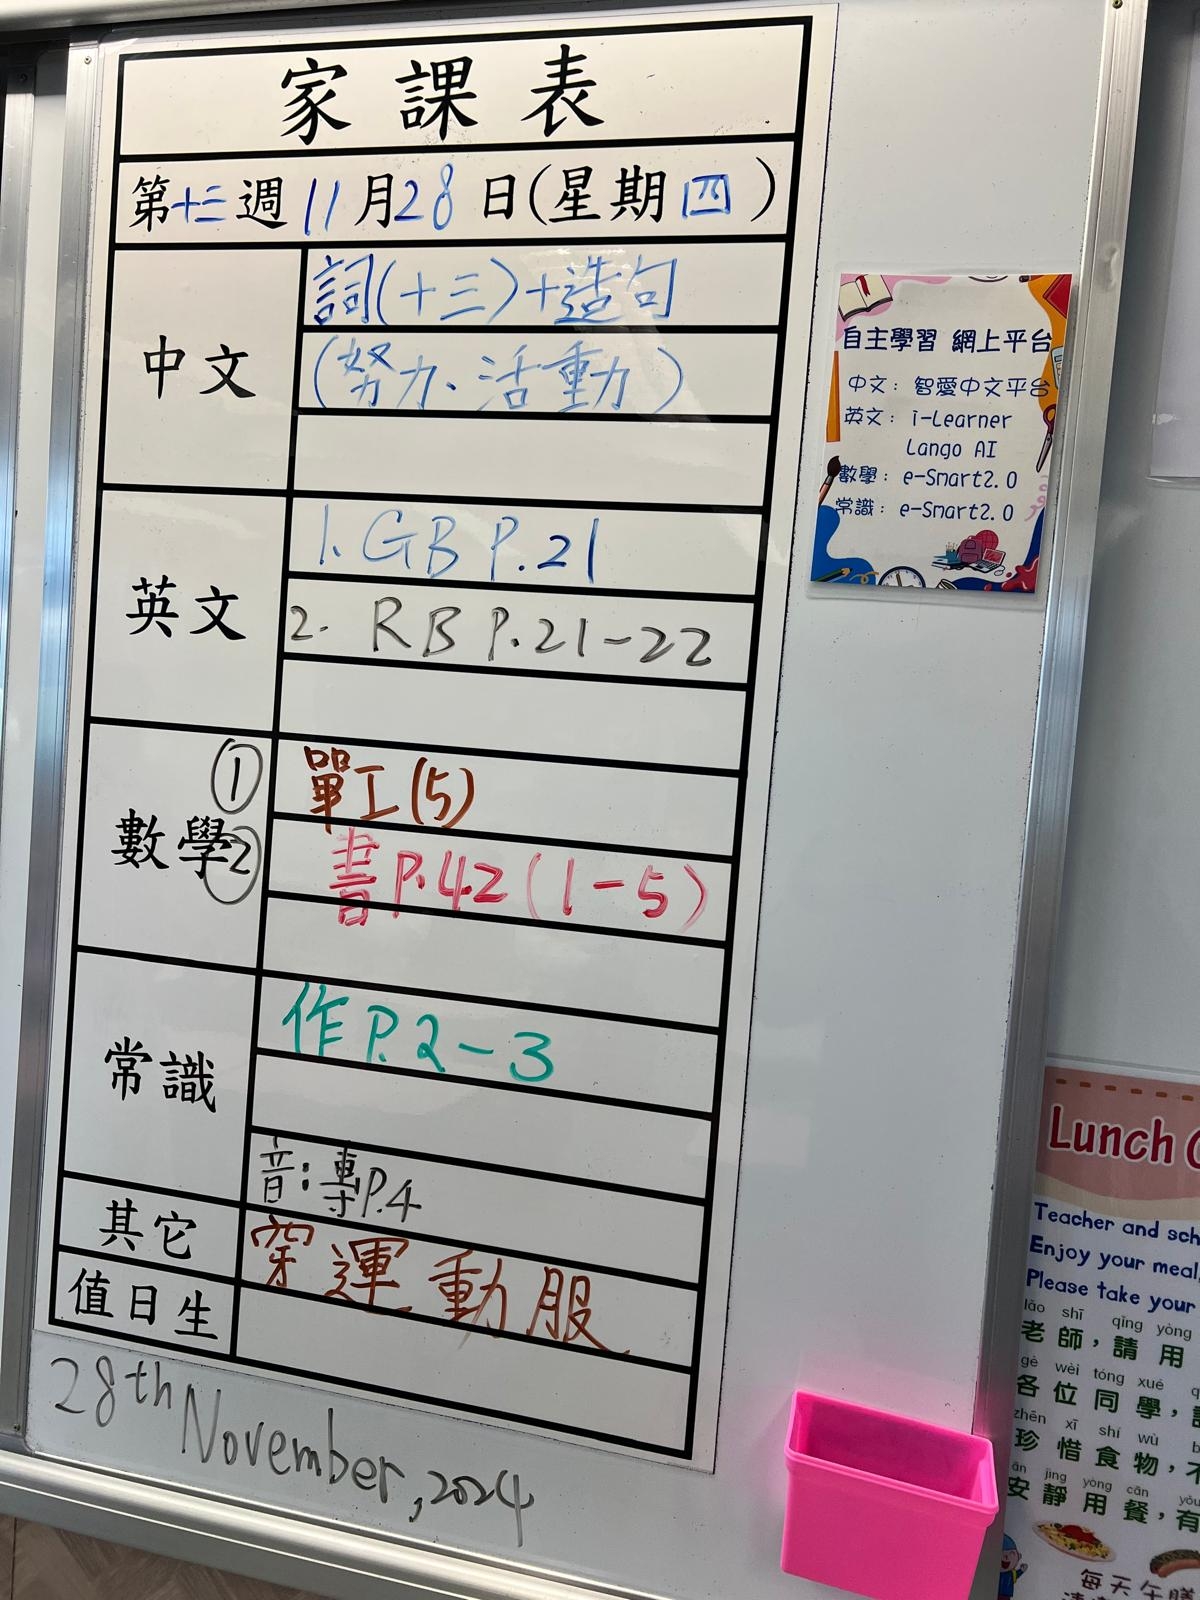 家課表
第十三週 11月28日(星期四)
中文
詞(十三)+造句
(努力、活動)
英文
1. GB P.21
2. RB P.21-22
數學
① 單工(5)
② 書P.42(1-5)
常識
作P.2-3
音:專P.4
其它
穿運動服
值日生
28th November, 2024
自主學習 網上平台
中文: 智愛中文平台
英文: i-Learner
Lango AI
數學: e-Smart2.0
常識: e-Smart2.0
Lunch
Teacher and
Enjoy your meal
Please take your
lǎo shī qǐng yòng
老師，請用
gè wèi tóng xué
各位同學，
zhēn xī shí wù
珍惜食物，不
ān jìng yòng cān
安靜用餐，有
每天午膳